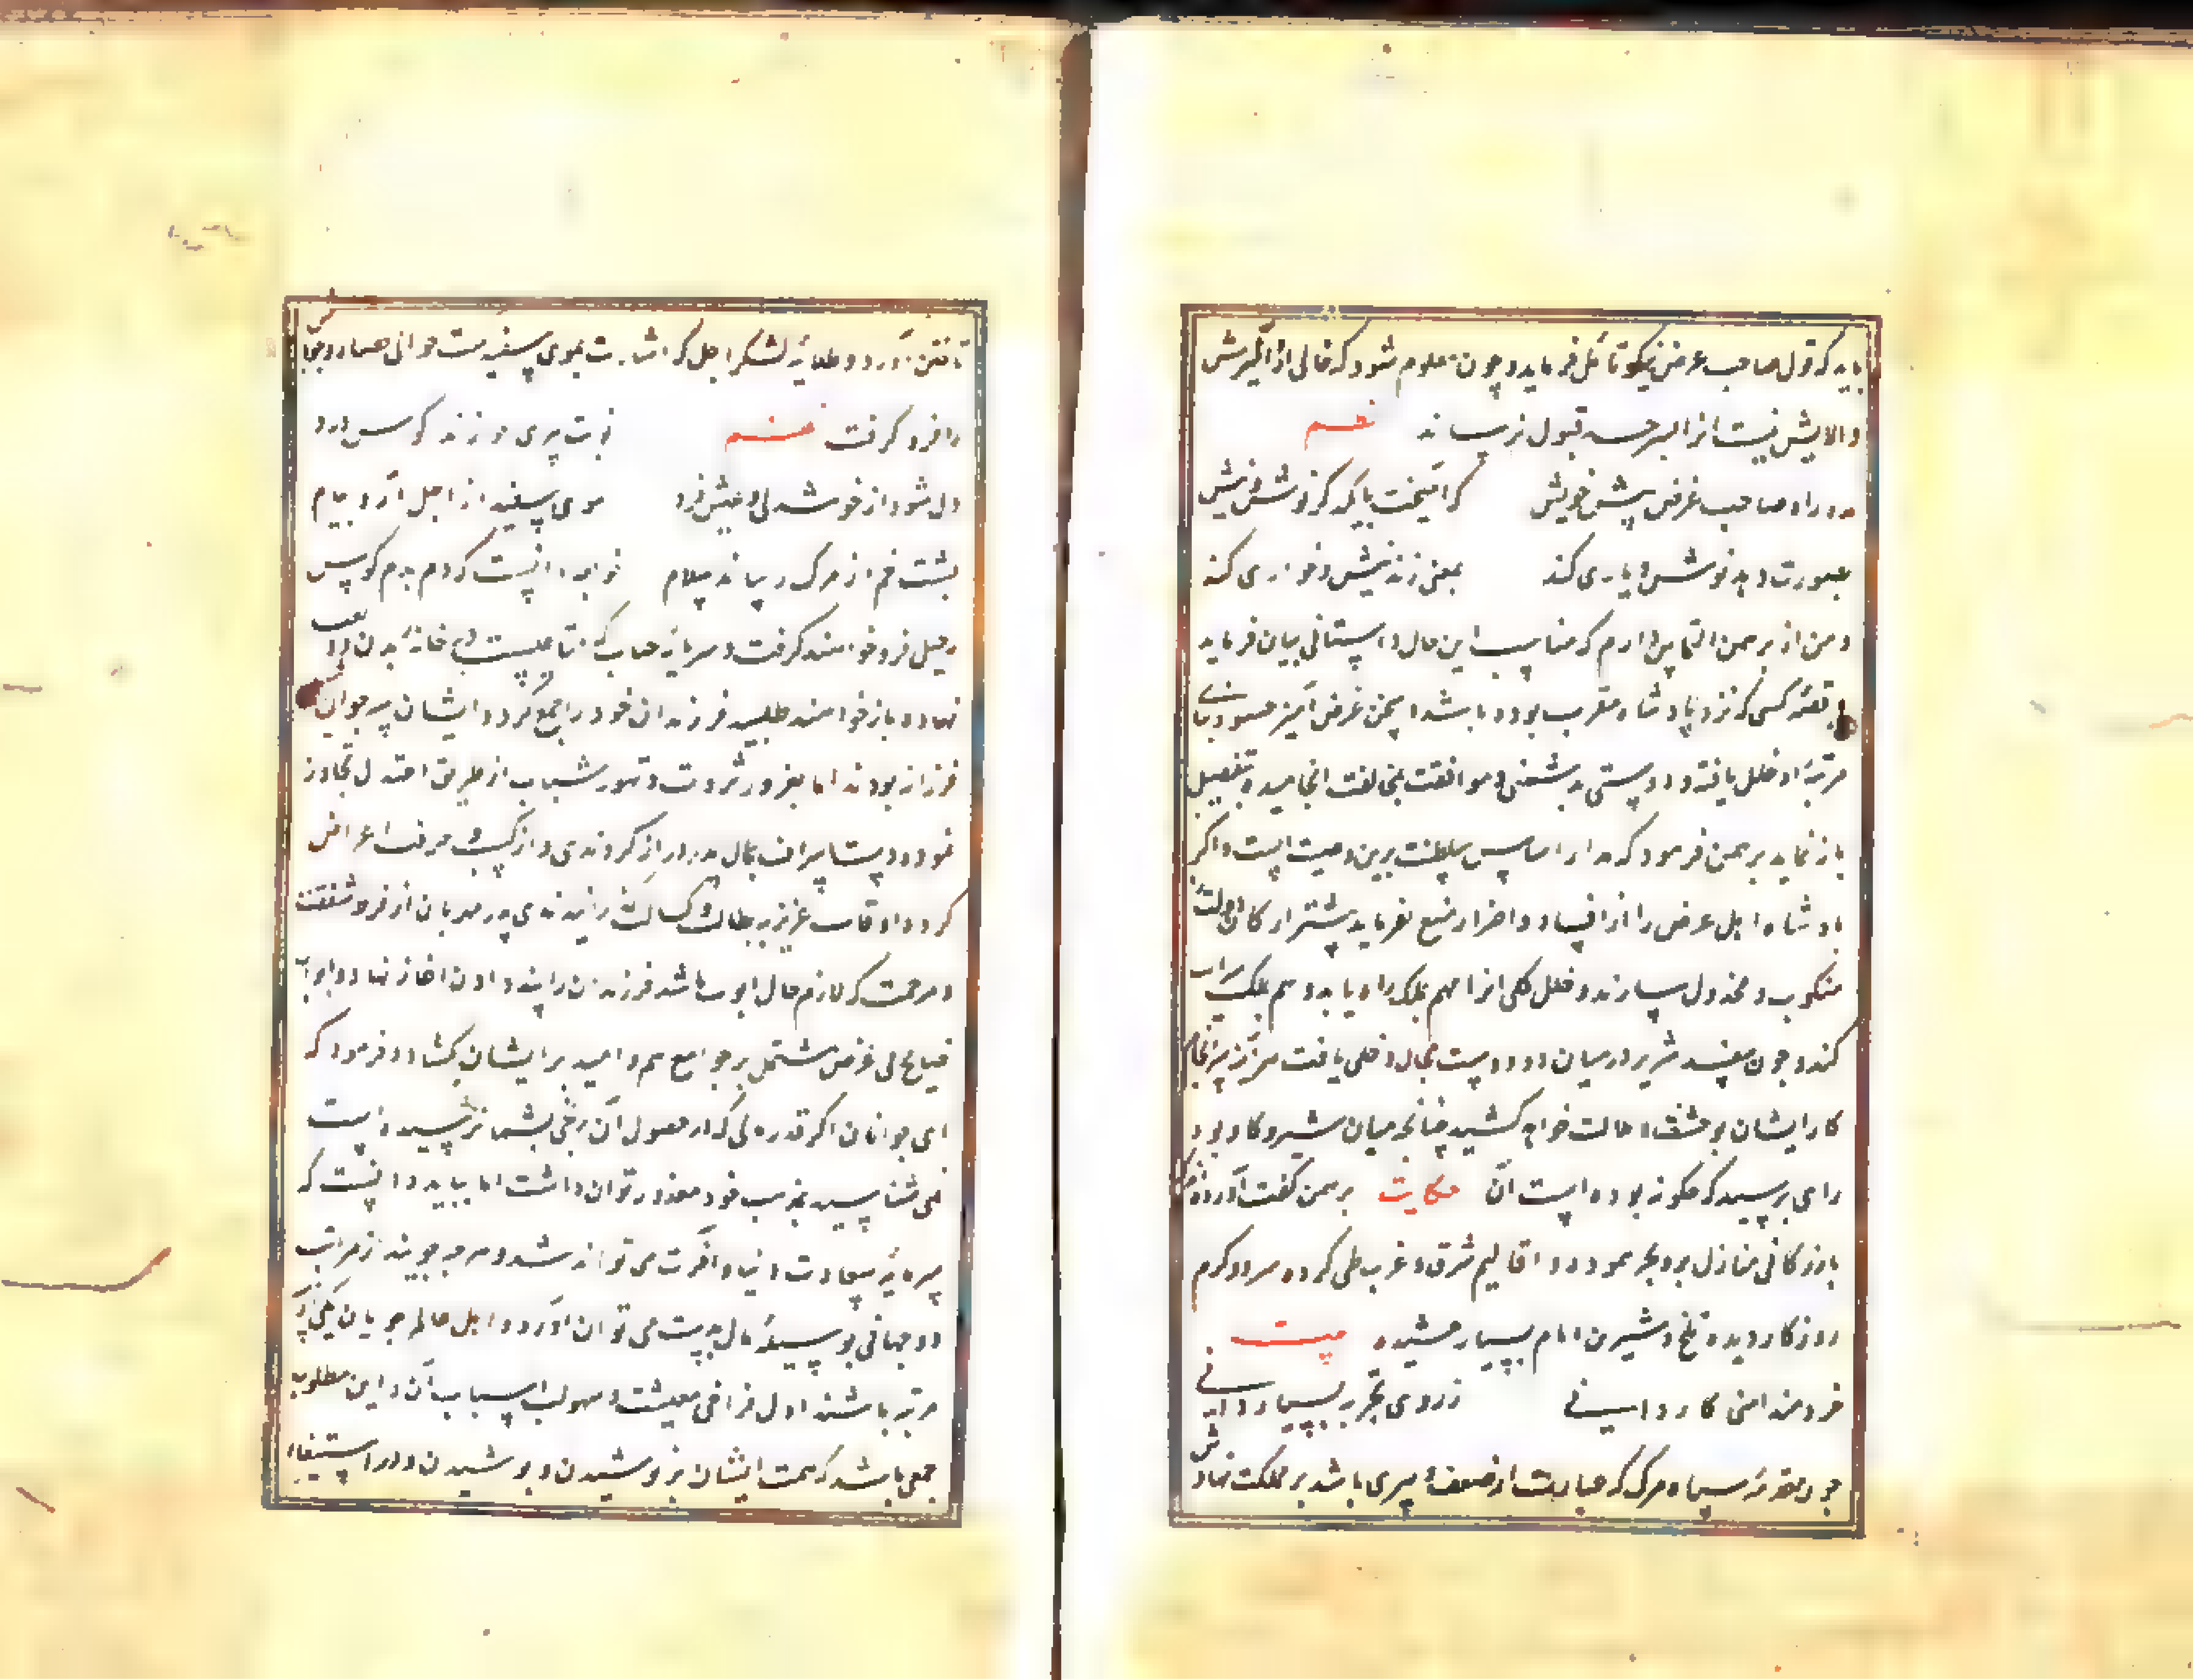 باید که قول صاحب غرض نیکو تأمل فرماید و چون معلوم شود که خالی از آمیزش
و آلایش نیست آنرا بسرحد قبول نرساند نظم
مده راه صاحب غرض پیش خویش که آمیخت با یکدگر نوش و نیش
بصورت دهد نوش و یاری کند بمعنی زند نیش و خواری کند
و من از برهمن التماس دارم که مناسب این حال داستانی بیان فرماید
و قصه کسی که نزد پادشاه مقرب بوده باشد و بسخن غرض آمیز حسود بنای
مرتبه او خلل یافته و دوستی بدشمنی و موافقت بمخالفت انجامیده بتفصیل
باز نماید برهمن فرمود که مدار اساس سلطنت برین وصیت است و اگر
پادشاه اهل غرض را از افساد و اضرار منع نفرماید بیشتر ارکان دولت را
منکوب و مخذول سازند و خلل کلی ازان هم بملک راه یابد و هم بملک سرایت
کند و چون مفسد شریر در میان دو دوست مجال دخل یافت هر آینه سرانجام
کار ایشان بوحشت و ملالت خواهد کشید چنانچه میان شیر و گاو بود
رای پرسید که چگونه بوده است آن حکایت برهمن گفت آورده‌اند که
بازرگانی منازل بر و بحر پیموده و اقالیم شرق و غرب طی کرده و سرد و گرم
روزگار دیده و تلخ و شیرین ایام بسیار چشیده بیت
خردمند امنی کاردانی ز روی تجربه بسیار دانی
چون مقدمه سپاه مرگ که عبارتست از ضعف پیری باشد بر مملکت نهادش
تاختن آورد و طلایه لشکر اجل که اشارت بموی سپیدست حوالی حصار وجودش
را فرو گرفت نظم نوبت پیری چو زند کوس درد
دل شود از خوشدلی و عیش فرد موی سپید از اجل آرد پیام
پشت خم از مرگ رساند سلام خواجه دانست که دم بدم کوس
رحیل فرو خواهند کوفت و سرمایه حیات که متاعیست در خانه بدن ودیعت
نهاده باز خواهند طلبید فرزندان خود را جمع کرد و ایشان سه جوان
فرزانه بودند اما بغرور ثروت و تهور شباب از طریق اعتدال تجاوز
نموده دست اسراف بمال پدر دراز کردندی و از کسب و حرفت اعراض
کرده اوقات عزیز ببطالت و کسالت گذرانیدندی پدر مهربان از فرط شفقت
و مرحمت که لازم حال ابوت باشد فرزندان را پند دادن آغاز نهاد و ابواب
نصایح بی غرض مشتمل بر جوامع بیم و امید بر ایشان بگشاد و فرمود که
ای جوانان اگر قدر مالی که در حصول آن رنجی بشما نرسیده است
نمی شناسید بمذهب خرد معذور توان داشت اما بباید دانست که
سرمایه سعادت دنیا و آخرت می تواند شد و هر چه جویند از مراتب
دو جهانی بوسیله مال بدست می توان آورد و اهل عالم جویان یکی از سه
مرتبه باشند اول فراخی معیشت و سهولت اسباب آن و این مطلوب
جمعی باشد که همت ایشان بر نوشیدن و پوشیدن و در استیفاء